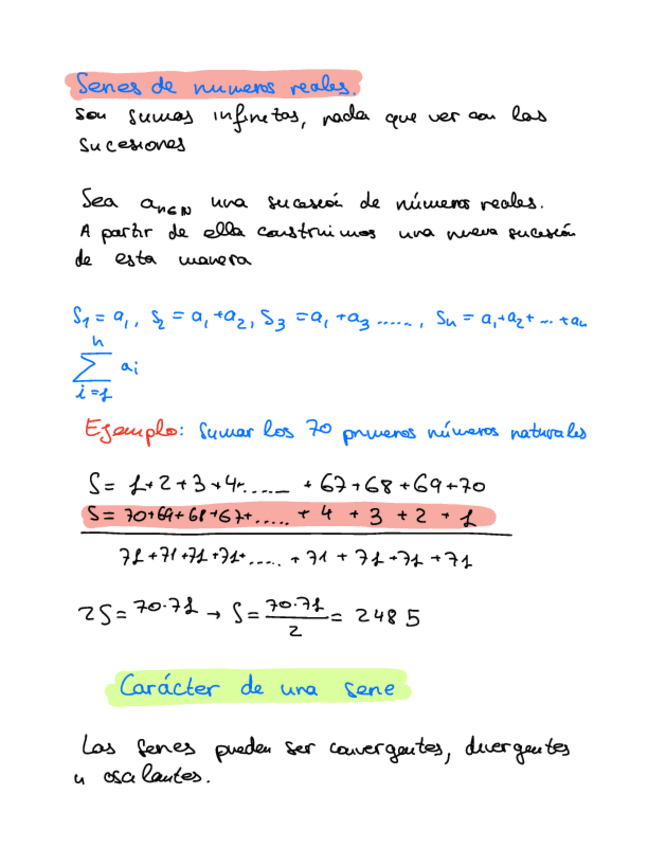 Series de numeros reales.
Son sumas infinitas, nada que ver con las
sucesiones
Sea aₙ∈ℕ una sucesión de números reales.
A partir de ella construimos una nueva sucesión
de esta manera
S₁ = a₁, S₂ = a₁ + a₂, S₃ = a₁ + a₃ ......, Sₙ = a₁ + a₂ + ... + aₙ
n
∑ aᵢ
i=1
Ejemplo: Sumar los 70 primeros números naturales
S = 1+2+3+4+...... + 67+68+69+70
S = 70+69+68+67+..... + 4 + 3 + 2 + 1
71+71+71+71+..... + 71 + 71 +71 +71
2S = 70·71 → S = 70·71 / 2 = 2485
Carácter de una serie
Las series pueden ser convergentes, divergentes
u oscilantes.